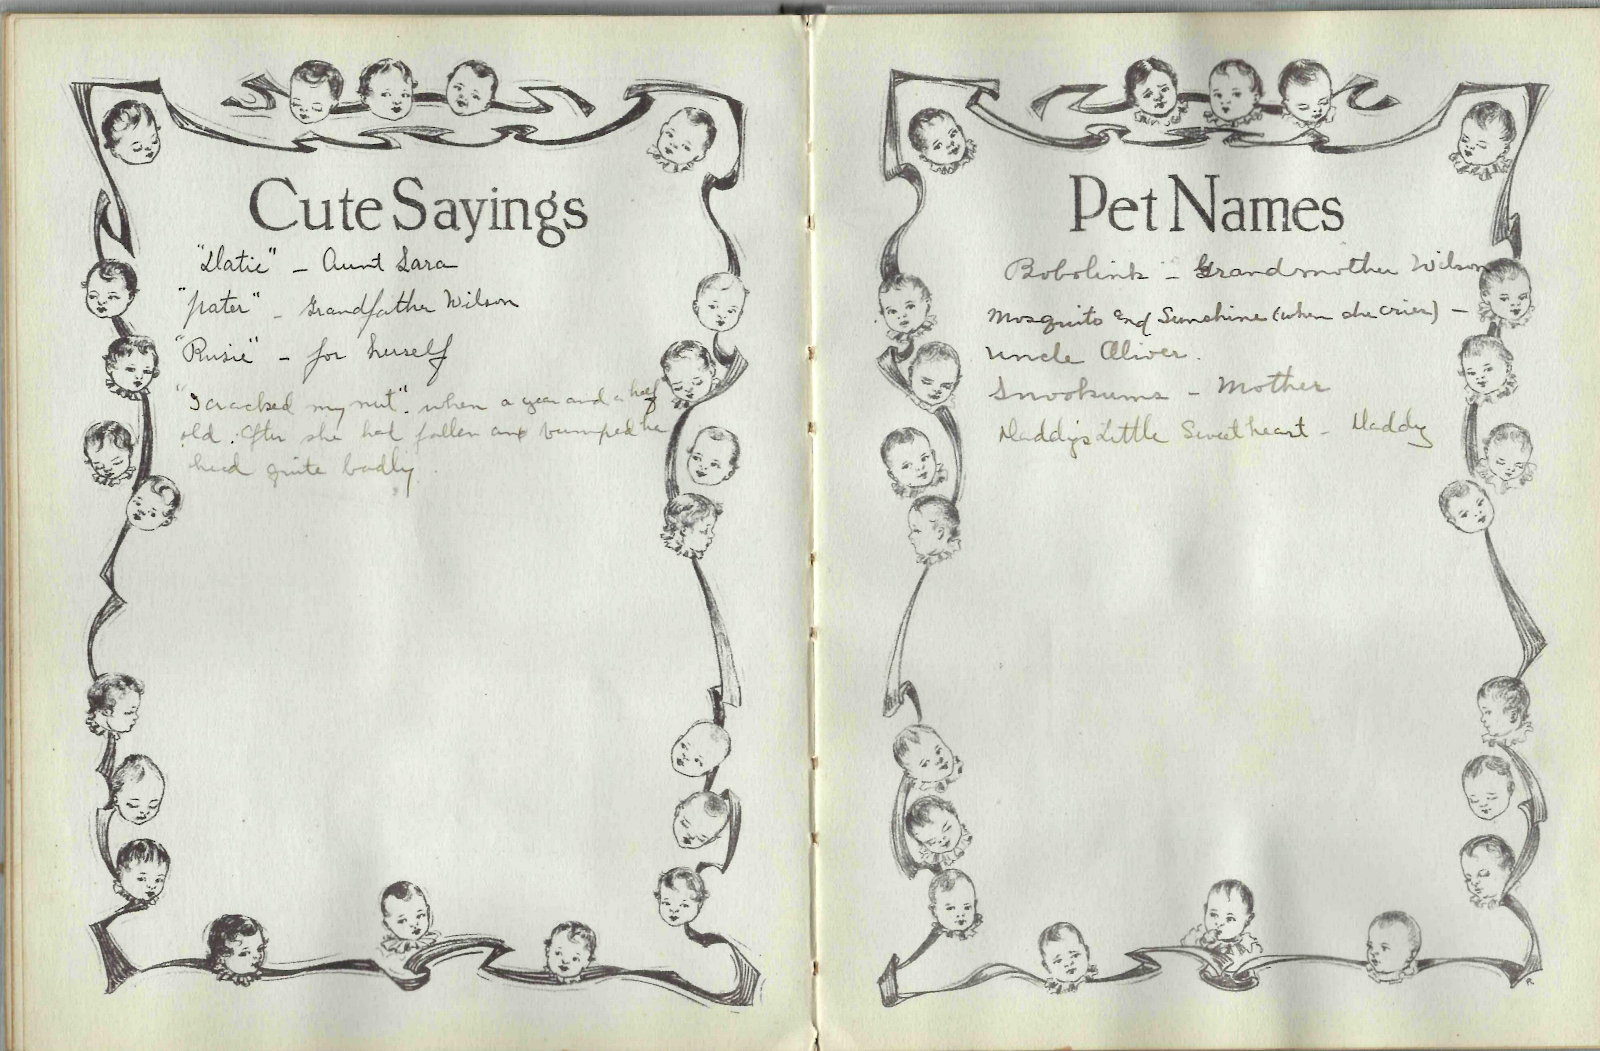 Cute Sayings
"Datie" - Aunt Sara
"pater" - Grandfather Wilson
"Rusie" - for herself
"I cracked my nut". when a year and a half
old. After she had fallen and bumped her
head quite badly.
Pet Names
Bobolink - Grandmother Wilson
Mosquito and Sunshine (when she cries) -
Uncle Oliver.
Snookums - Mother
Daddy's Little Sweetheart - Daddy
R